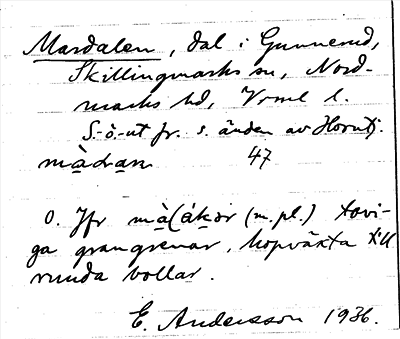 Mardalen, dal i Gunnerud,
Skillingmarks sn, Nord-
marks hd, Vrml l.
S.-ö.-ut fr. s. änden av Horntj.
mà̱dḁn 47
O. Jfr mà̱(ák̄ər (m.pl.) tovi-
ga grangrenar, hopväxta till
runda bollar.
E. Andersson 1936.